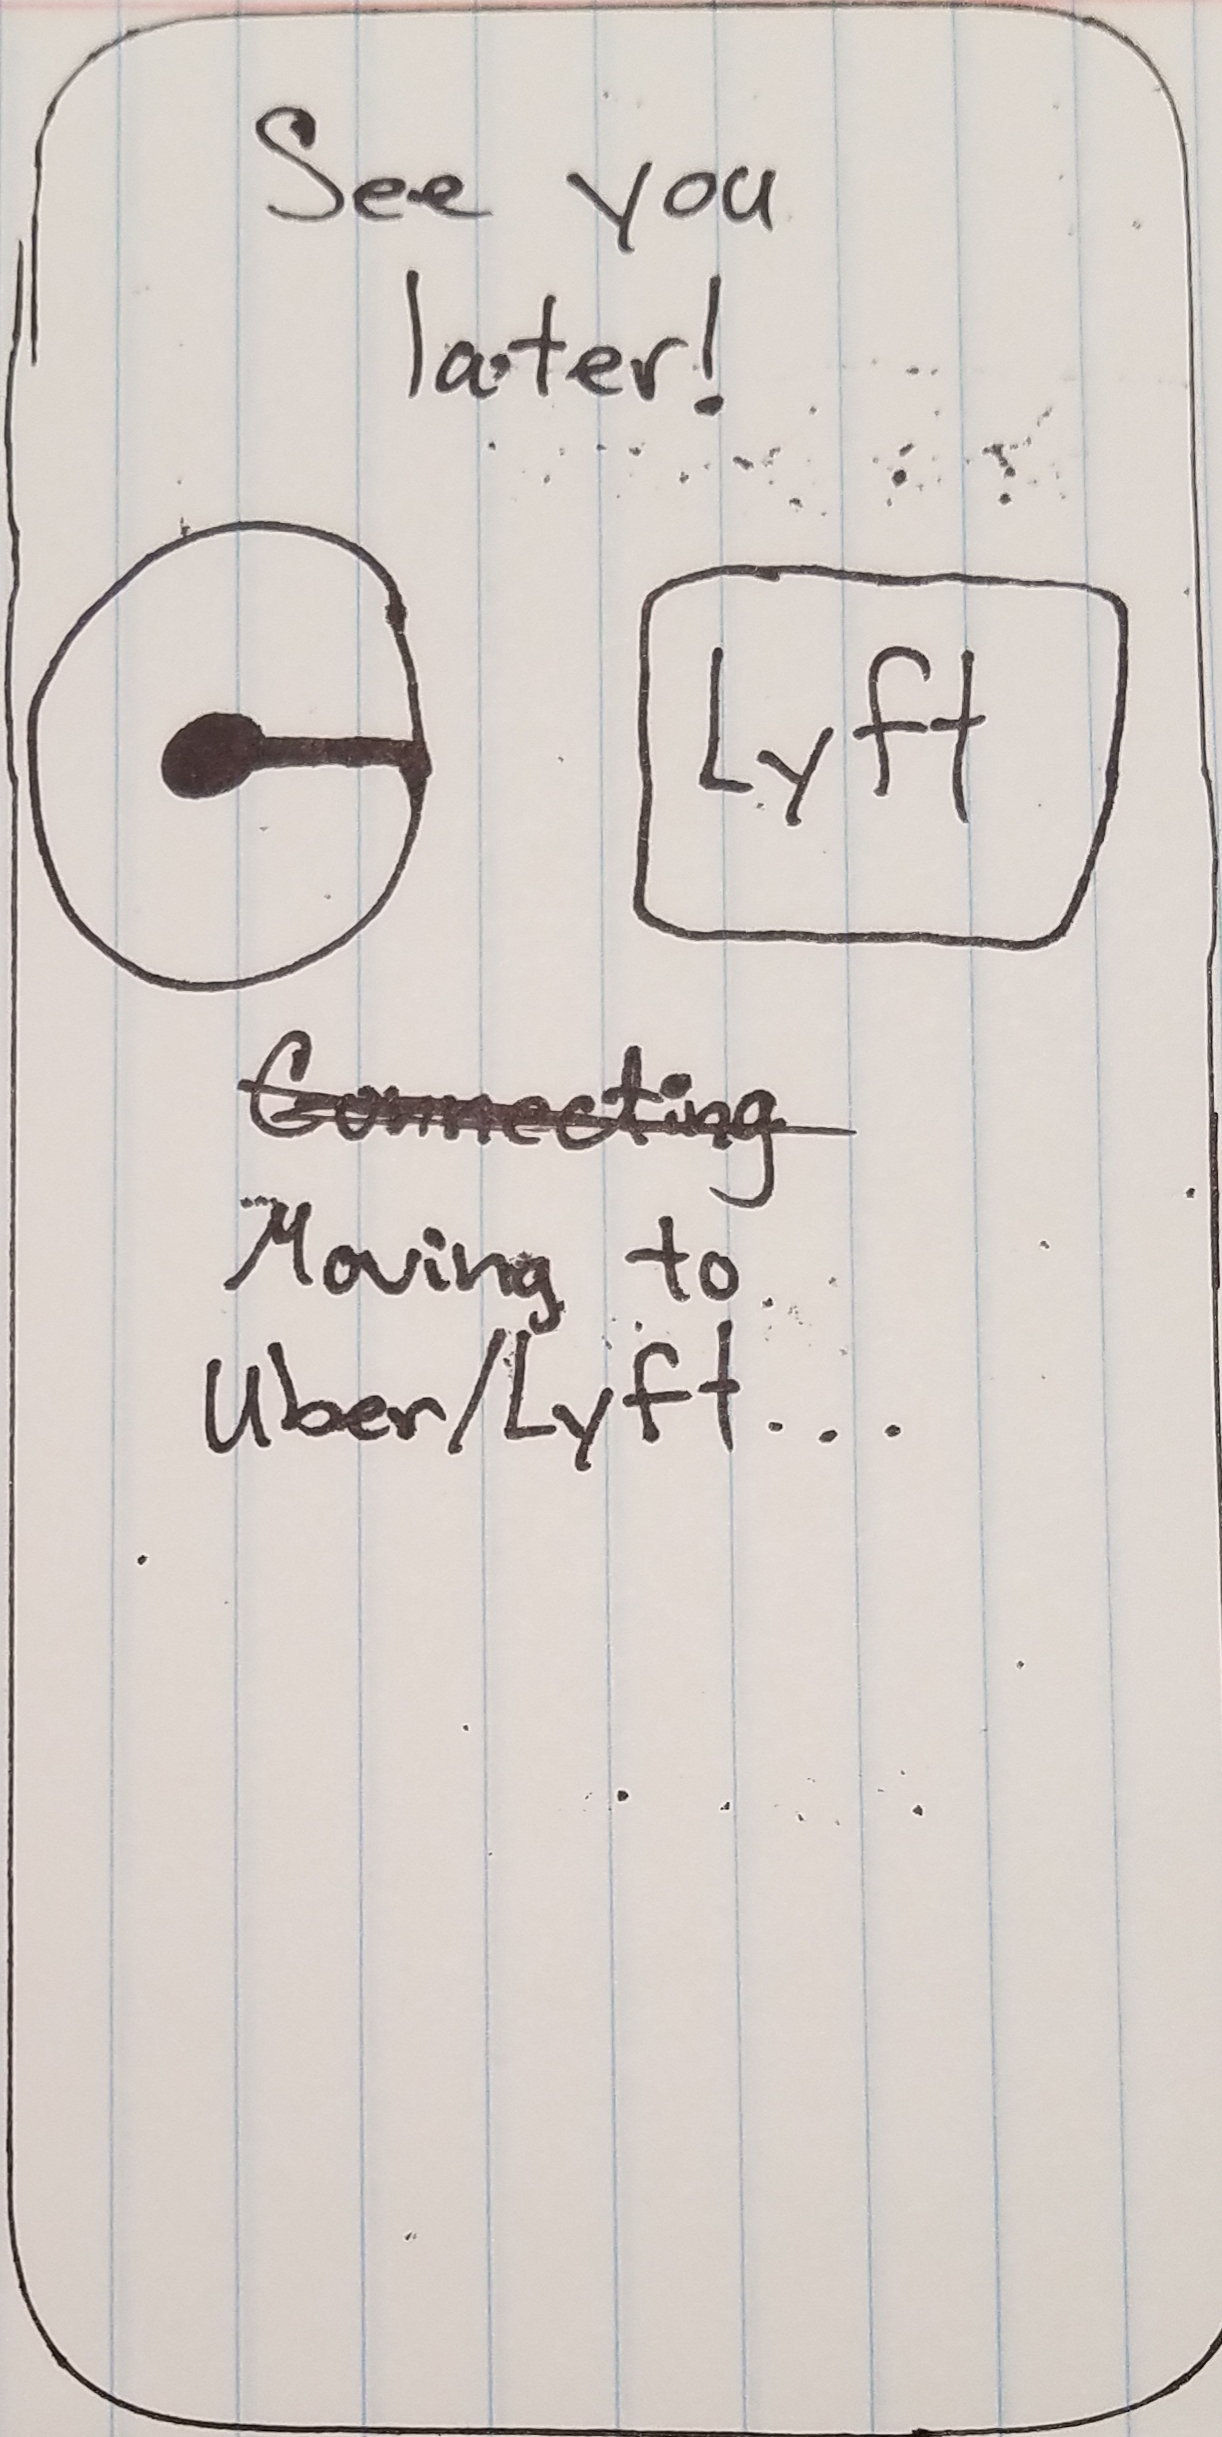 See you
later!
Lyft
Connecting
Moving to
Uber/Lyft...